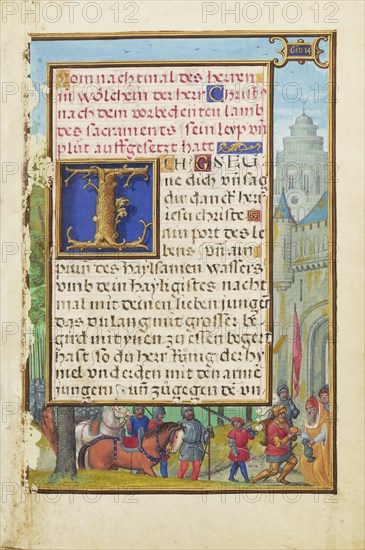 Gen: 14
Vom nachtmal des herren
in wolchem der herr Christ9
nach dem vorbedeuten lamb
des sacraments sein leyp vn̄
plut auffgesetzt hatt
ICH
ne dich vn̄ sag
dir danck her
ihesu christe
ain port des le
bens vn̄ ain
prun des haylsamen wassers
vmb dein hayligistes nacht
mal mit deinen lieben junger
das du lang mit grosser be
gird mit ynen zu essen begert
hast so du herr König der hy
miel vnd erden mit den arme
jungern vn̄ zugegen de vn
PHOTO12